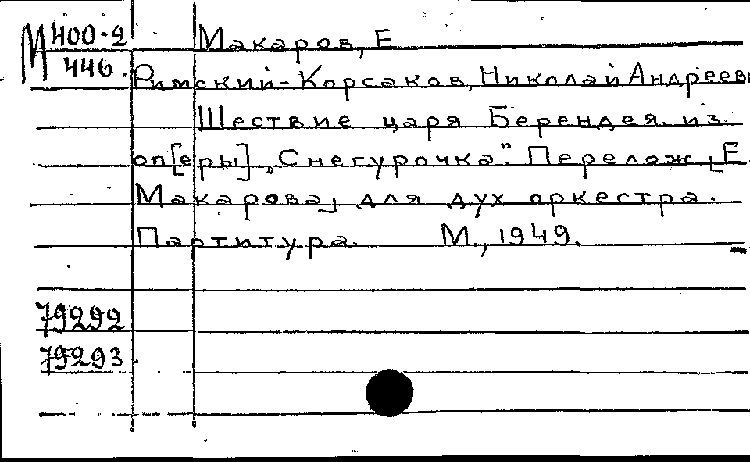 М 400-2
446
Макаров, Е
Римский-Корсаков, Николай Андреев
Шествие царя Берендея. из
оп[еры] „Снегурочка". Перелож. [Е
Макарова] для дух оркестра.
Партитура. М., 1949.
79292
79293